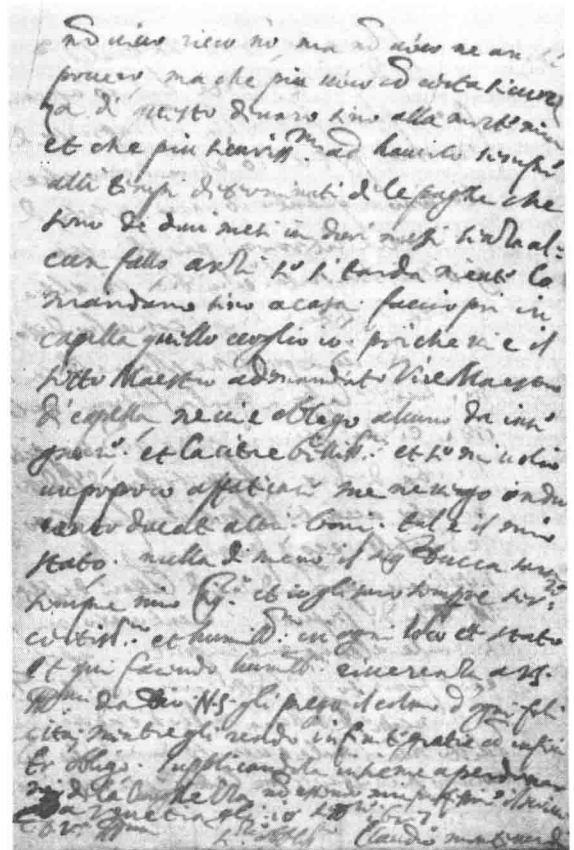 nō vivo ricco nò, ma nō vivo ne an
povero, ma che più vivo cō certa sicurez
za di questo denaro sino alla morte mia
et che più sicuriss.mo ad haverlo sempre
alli tempi determinati de le paghe che
sono de duoi mesi in duoi mesi senza al=
cun fallo anzi se si tarda niente lo
mandano sino a casa. faccio poi in
capella quello voglio io. perche vi e il
sotto Maestro adimandato Vice Maestro
di capella ne vi e obligo alcuno da inse
gnare. et la citta è bellis.ma et se mi voglio
un popoco affaticare me ne vengo in du
cento ducati altri boni. tal è il mio
stato. nulla di meno il sig. Ducca sarà
sempre mio sig.re et io gli saro sempre ser.re
certiss.mo et humiliss.mo in ogni loco et stato
et qui facendo humiliss. riverenza a V.S.
Ill.ma da Dio N.S. gli prego il colmo d'ogni feli
cità, mentre gli rendo infinite gratie cō infini
to obligo. supplicandola insieme a perdonar
mi de la
da Venetia
di V.S. Ill.ma
Claudio Monteverdi